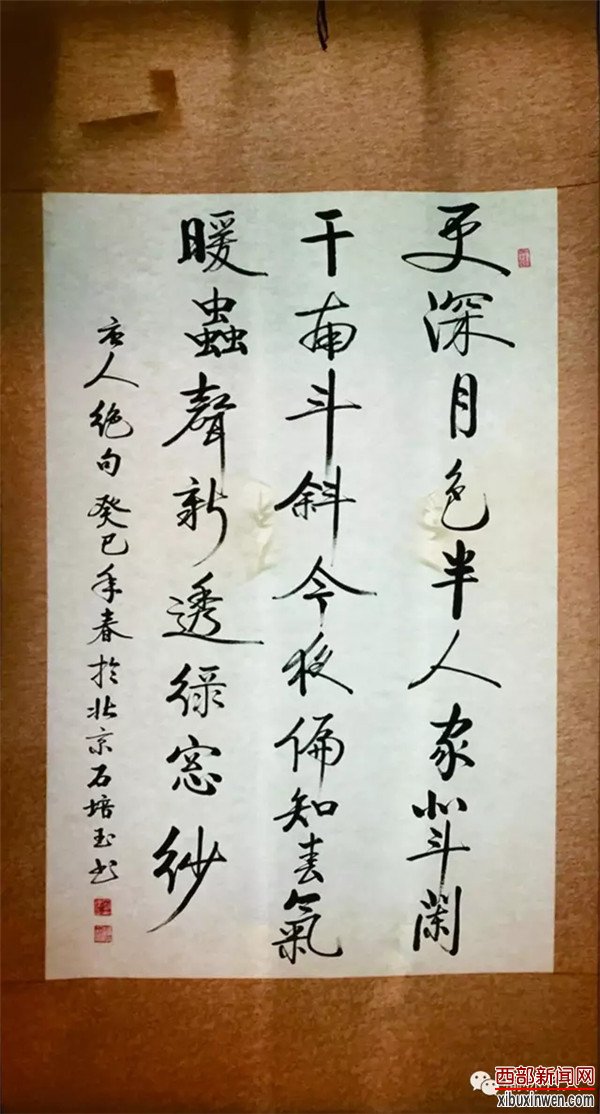 更深月色半人家北斗闌
干南斗斜今夜偏知春氣
暖蟲聲新透綠窓紗
唐人絶句癸巳年春於北京石培玉书
西部新闻网
xibuxinwen.com